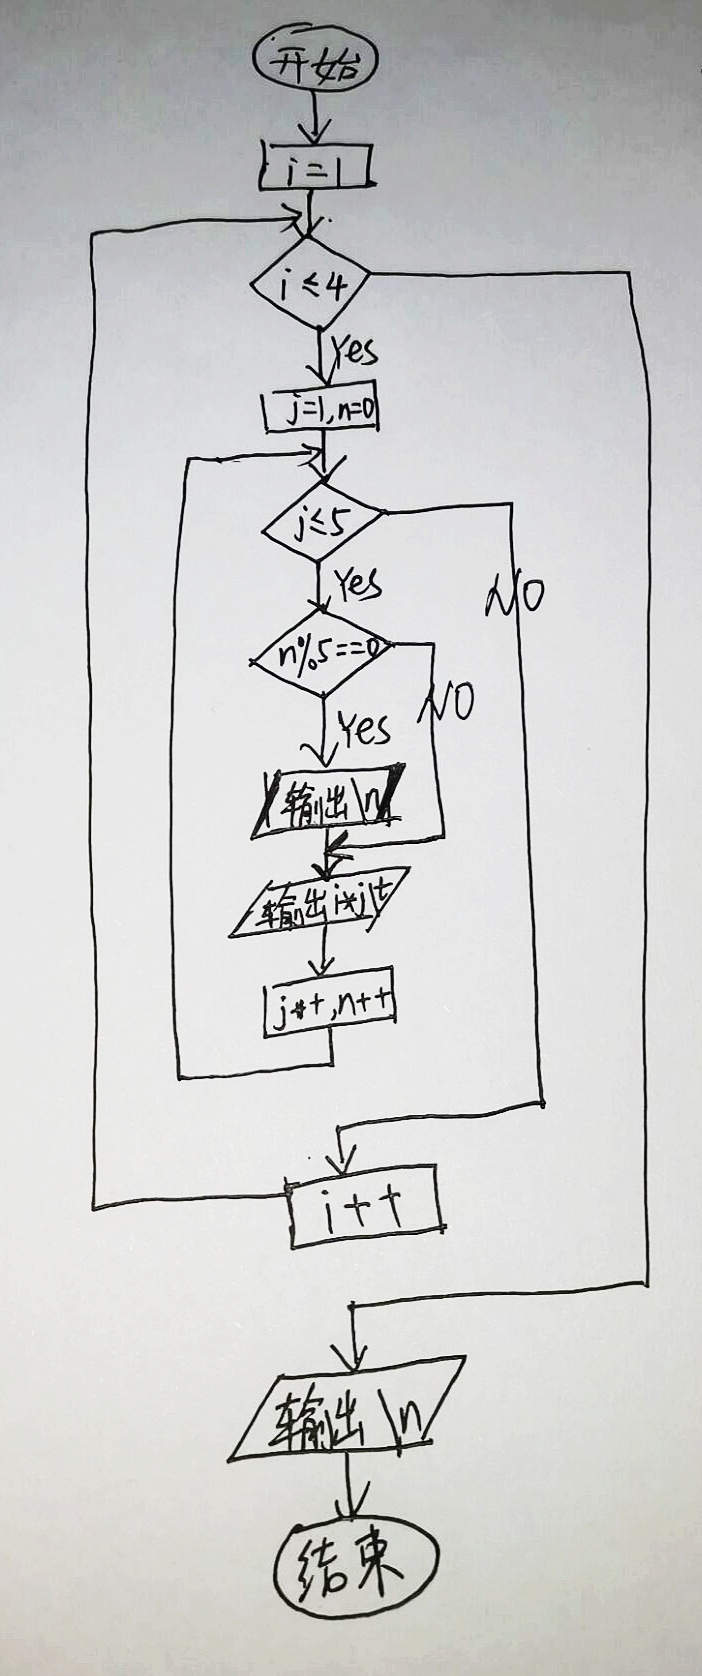 开始
i=1
i≤4
Yes
j=1,n=0
j≤5
Yes
NO
n%5==0
NO
Yes
输出\n
输出i*j\t
j++,n++
i++
输出\n
结束